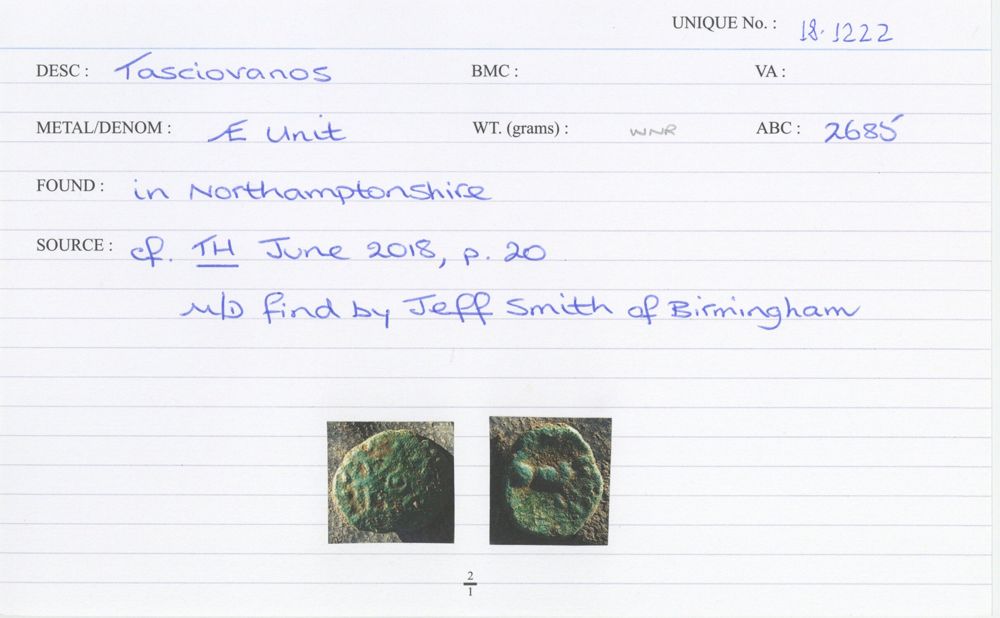 UNIQUE No. : 18.1222
DESC : Tasciovanos BMC : VA :
METAL/DENOM : Æ Unit WT. (grams) : WNR ABC : 2685
FOUND : in Northamptonshire
SOURCE : cf. TH June 2018, p. 20
M/D find by Jeff Smith of Birmingham
2
1